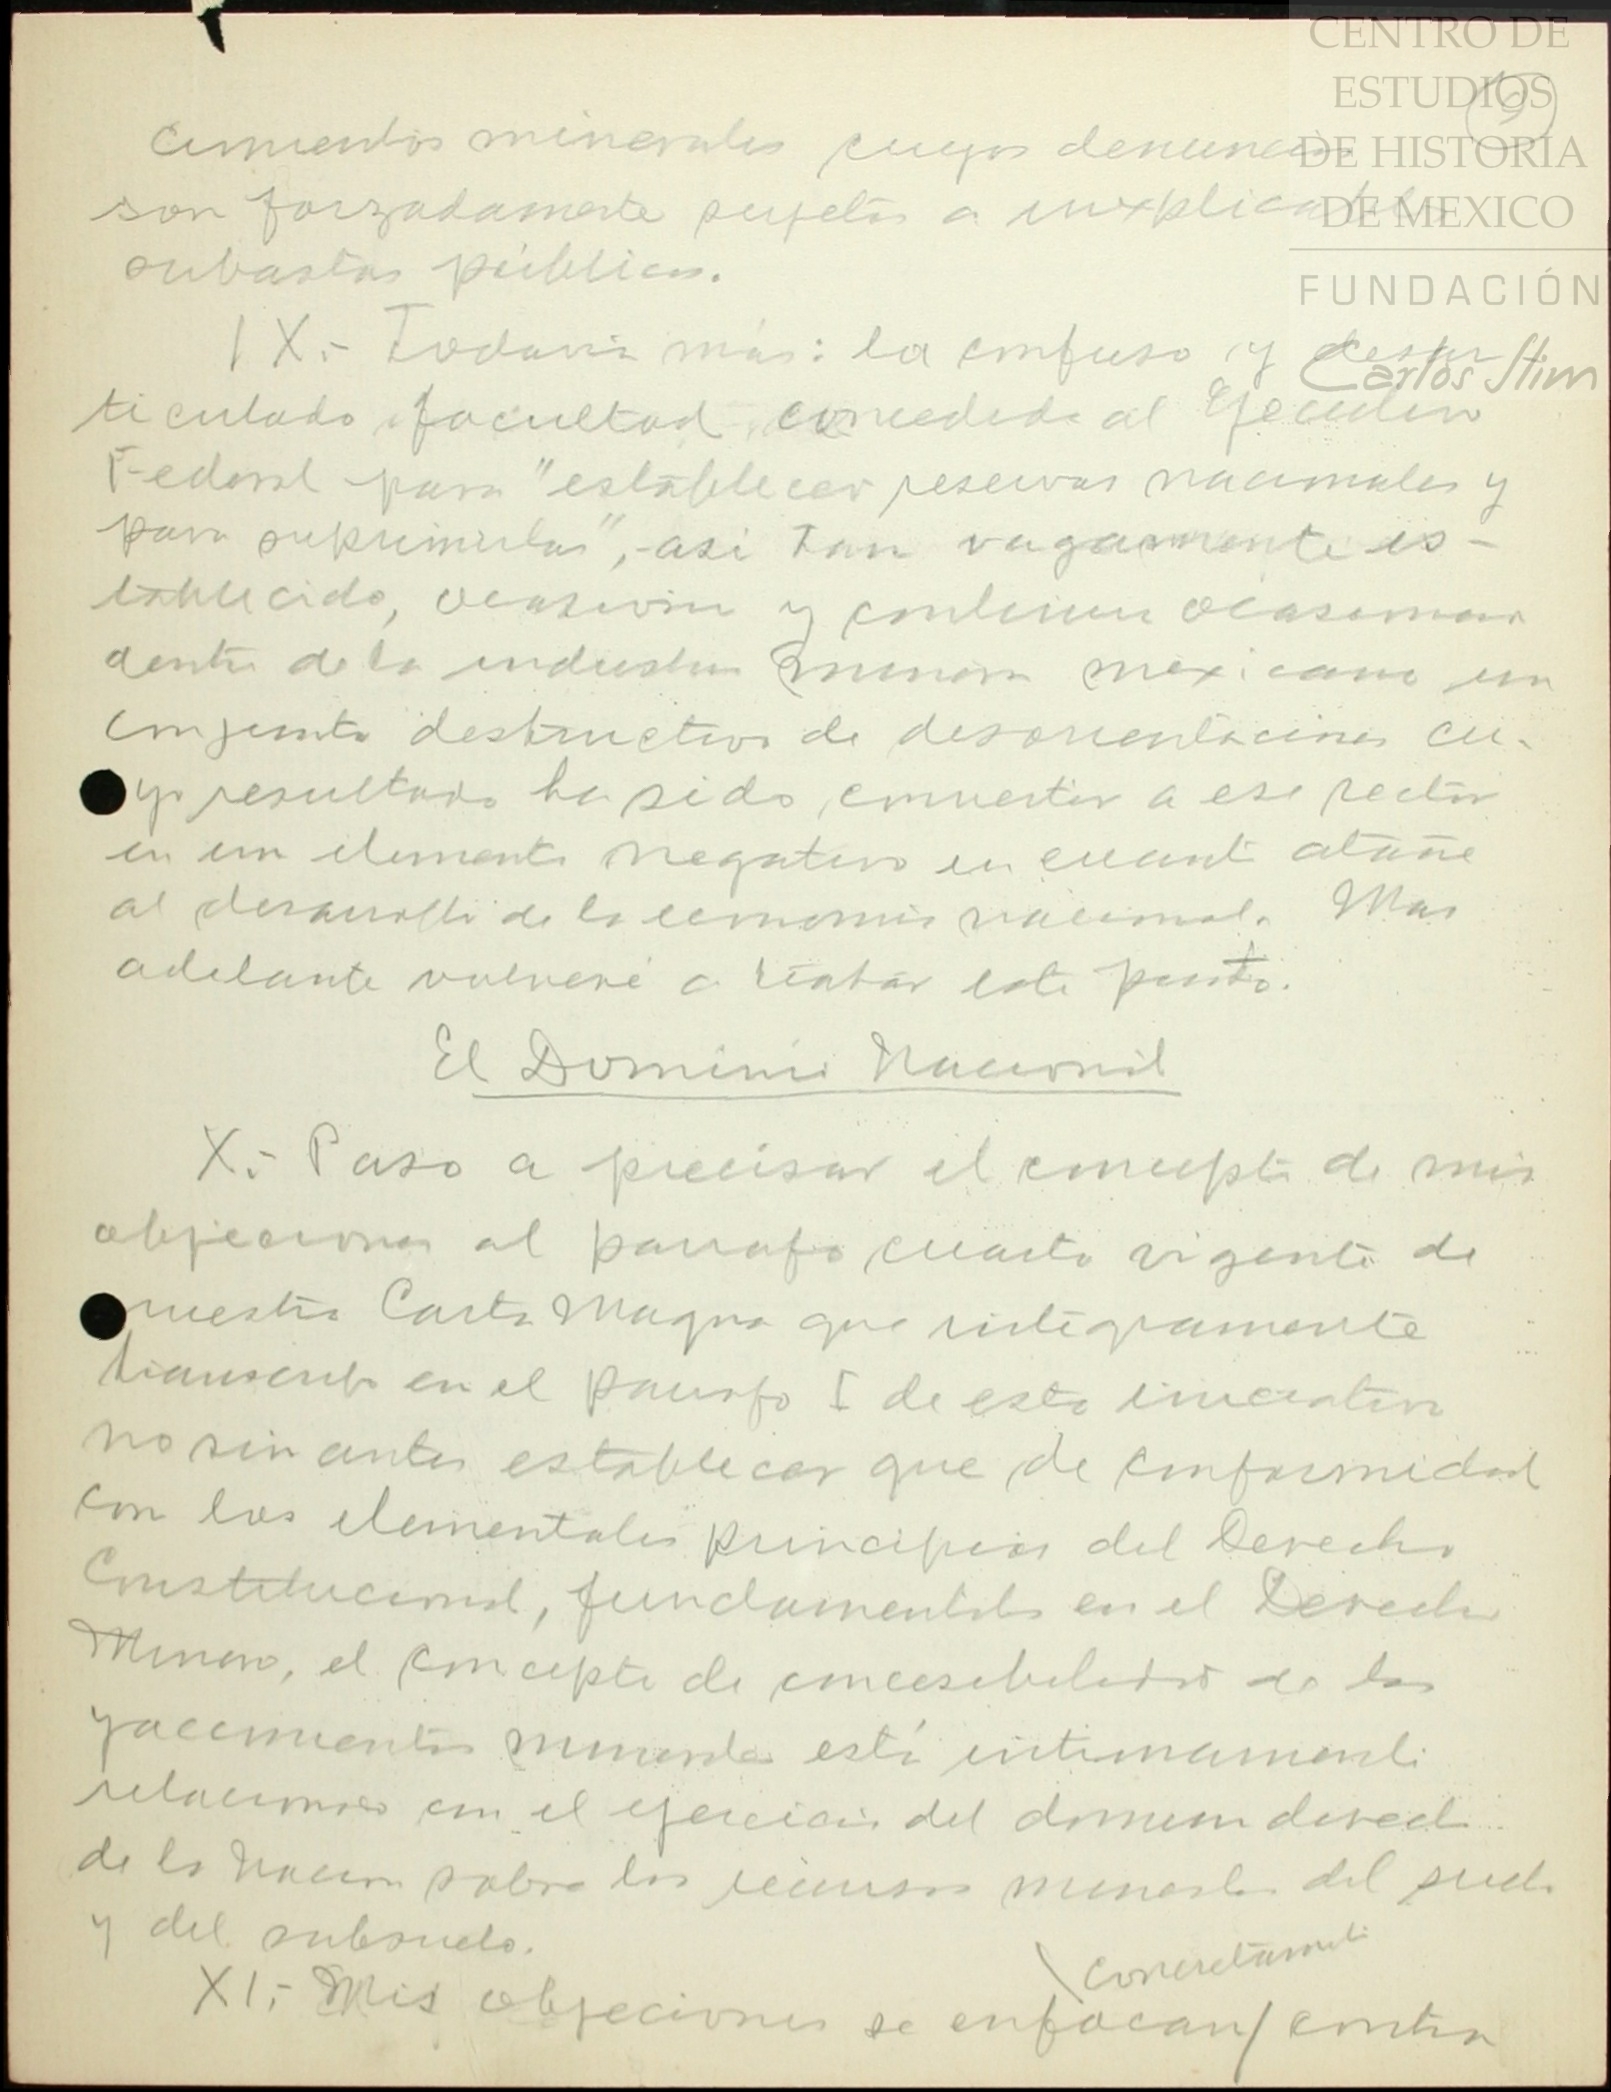 CENTRO DE
ESTUDIOS
DE HISTORIA
DE MEXICO
FUNDACIÓN
Carlos Slim
cimientos minerales cuyos denuncios
son forzadamente sujetos a inexplicables
subastas públicas.
IX.- Todavia más: la confusa y desar
ticulada facultad concedida al Ejecutivo
Federal para "establecer reservas nacionales y
para suprimirlas", -asi tan vagamente es-
tablecida, ocasiona y continua ocasionar
dentro de la industria minera mexicana un
conjunto destructivo de desorientaciones cu-
yo resultado ha sido convertir a ese sector
en un elemento negativo en cuanto atañe
al desarrollo de la economia nacional. Mas
adelante volveré a tratar este punto.
El Dominio Nacional
X.- Paso a precisar el concepto de mis
objeciones al parrafo cuarto vigente de
nuestra Carta Magna que integramente
transcribo en el parrafo I de esta iniciativa
no sin antes establecer que de conformidad
con los elementales principios del Derecho
Constitucional, fundamentales en el Derecho
Minero, el concepto de concesibilidad de los
yacimientos minerales está intimamente
relacionado con el ejercicio del dominio directo
de la Nacion sobre los recursos minerales del suelo
y del subsuelo.
concretamente
XI.- Mis objeciones se enfocan/ contra